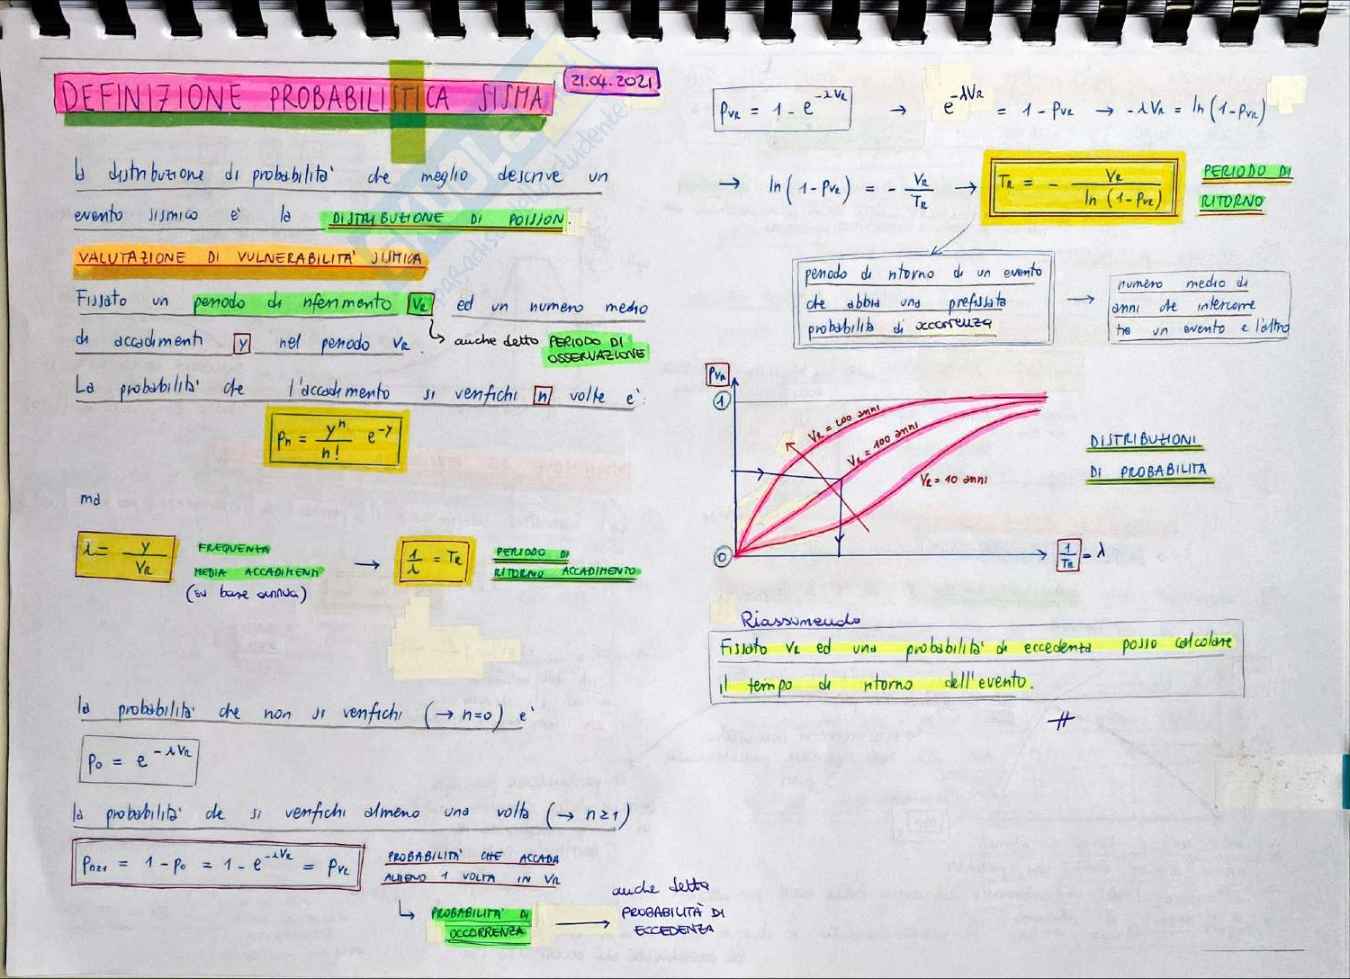 DEFINIZIONE PROBABILISTICA SISMA
21.04.2021
la distribuzione di probabilità che meglio descrive un
evento sismico è la DISTRIBUZIONE DI POISSON.
VALUTAZIONE DI VULNERABILITA' SISMICA
Fissato un periodo di riferimento VR ed un numero medio
di accadimenti y nel periodo VR.
↳ anche detto PERIODO DI
OSSERVAZIONE
La probabilità che l'accadimento si verifichi n volte è:
Pn = y^n / n! e^-y
ma
λ = y / VR
FREQUENZA
MEDIA ACCADIMENTI
(su base annua)
→ 1/λ = TR
PERIODO DI
RITORNO ACCADIMENTO
la probabilità che non si verifichi (→ n=0) è
P0 = e^-λVR
la probabilità che si verifichi almeno una volta (→ n≥1)
Pn≥1 = 1 - P0 = 1 - e^-λVR = PVR
PROBABILITA' CHE ACCADA
ALMENO 1 VOLTA IN VR
↳ PROBABILITA' DI
OCCORRENZA
→ anche detta
PROBABILITÀ DI
ECCEDENZA
PVR = 1 - e^-λVR → e^-λVR = 1 - PVR → -λVR = ln(1-PVR)
→ ln(1-PVR) = - VR/TR → TR = - VR / ln(1-PVR)
PERIODO DI
RITORNO
periodo di ritorno di un evento
che abbia una prefissata
probabilità di occorrenza
→ numero medio di
anni che intercorre
tra un evento e l'altro
PVR
1
VR = 200 anni
VR = 100 anni
VR = 10 anni
0
1/TR = λ
DISTRIBUZIONI
DI PROBABILITA
Riassumendo
Fissato VR ed una probabilità di eccedenza posso calcolare
il tempo di ritorno dell'evento.